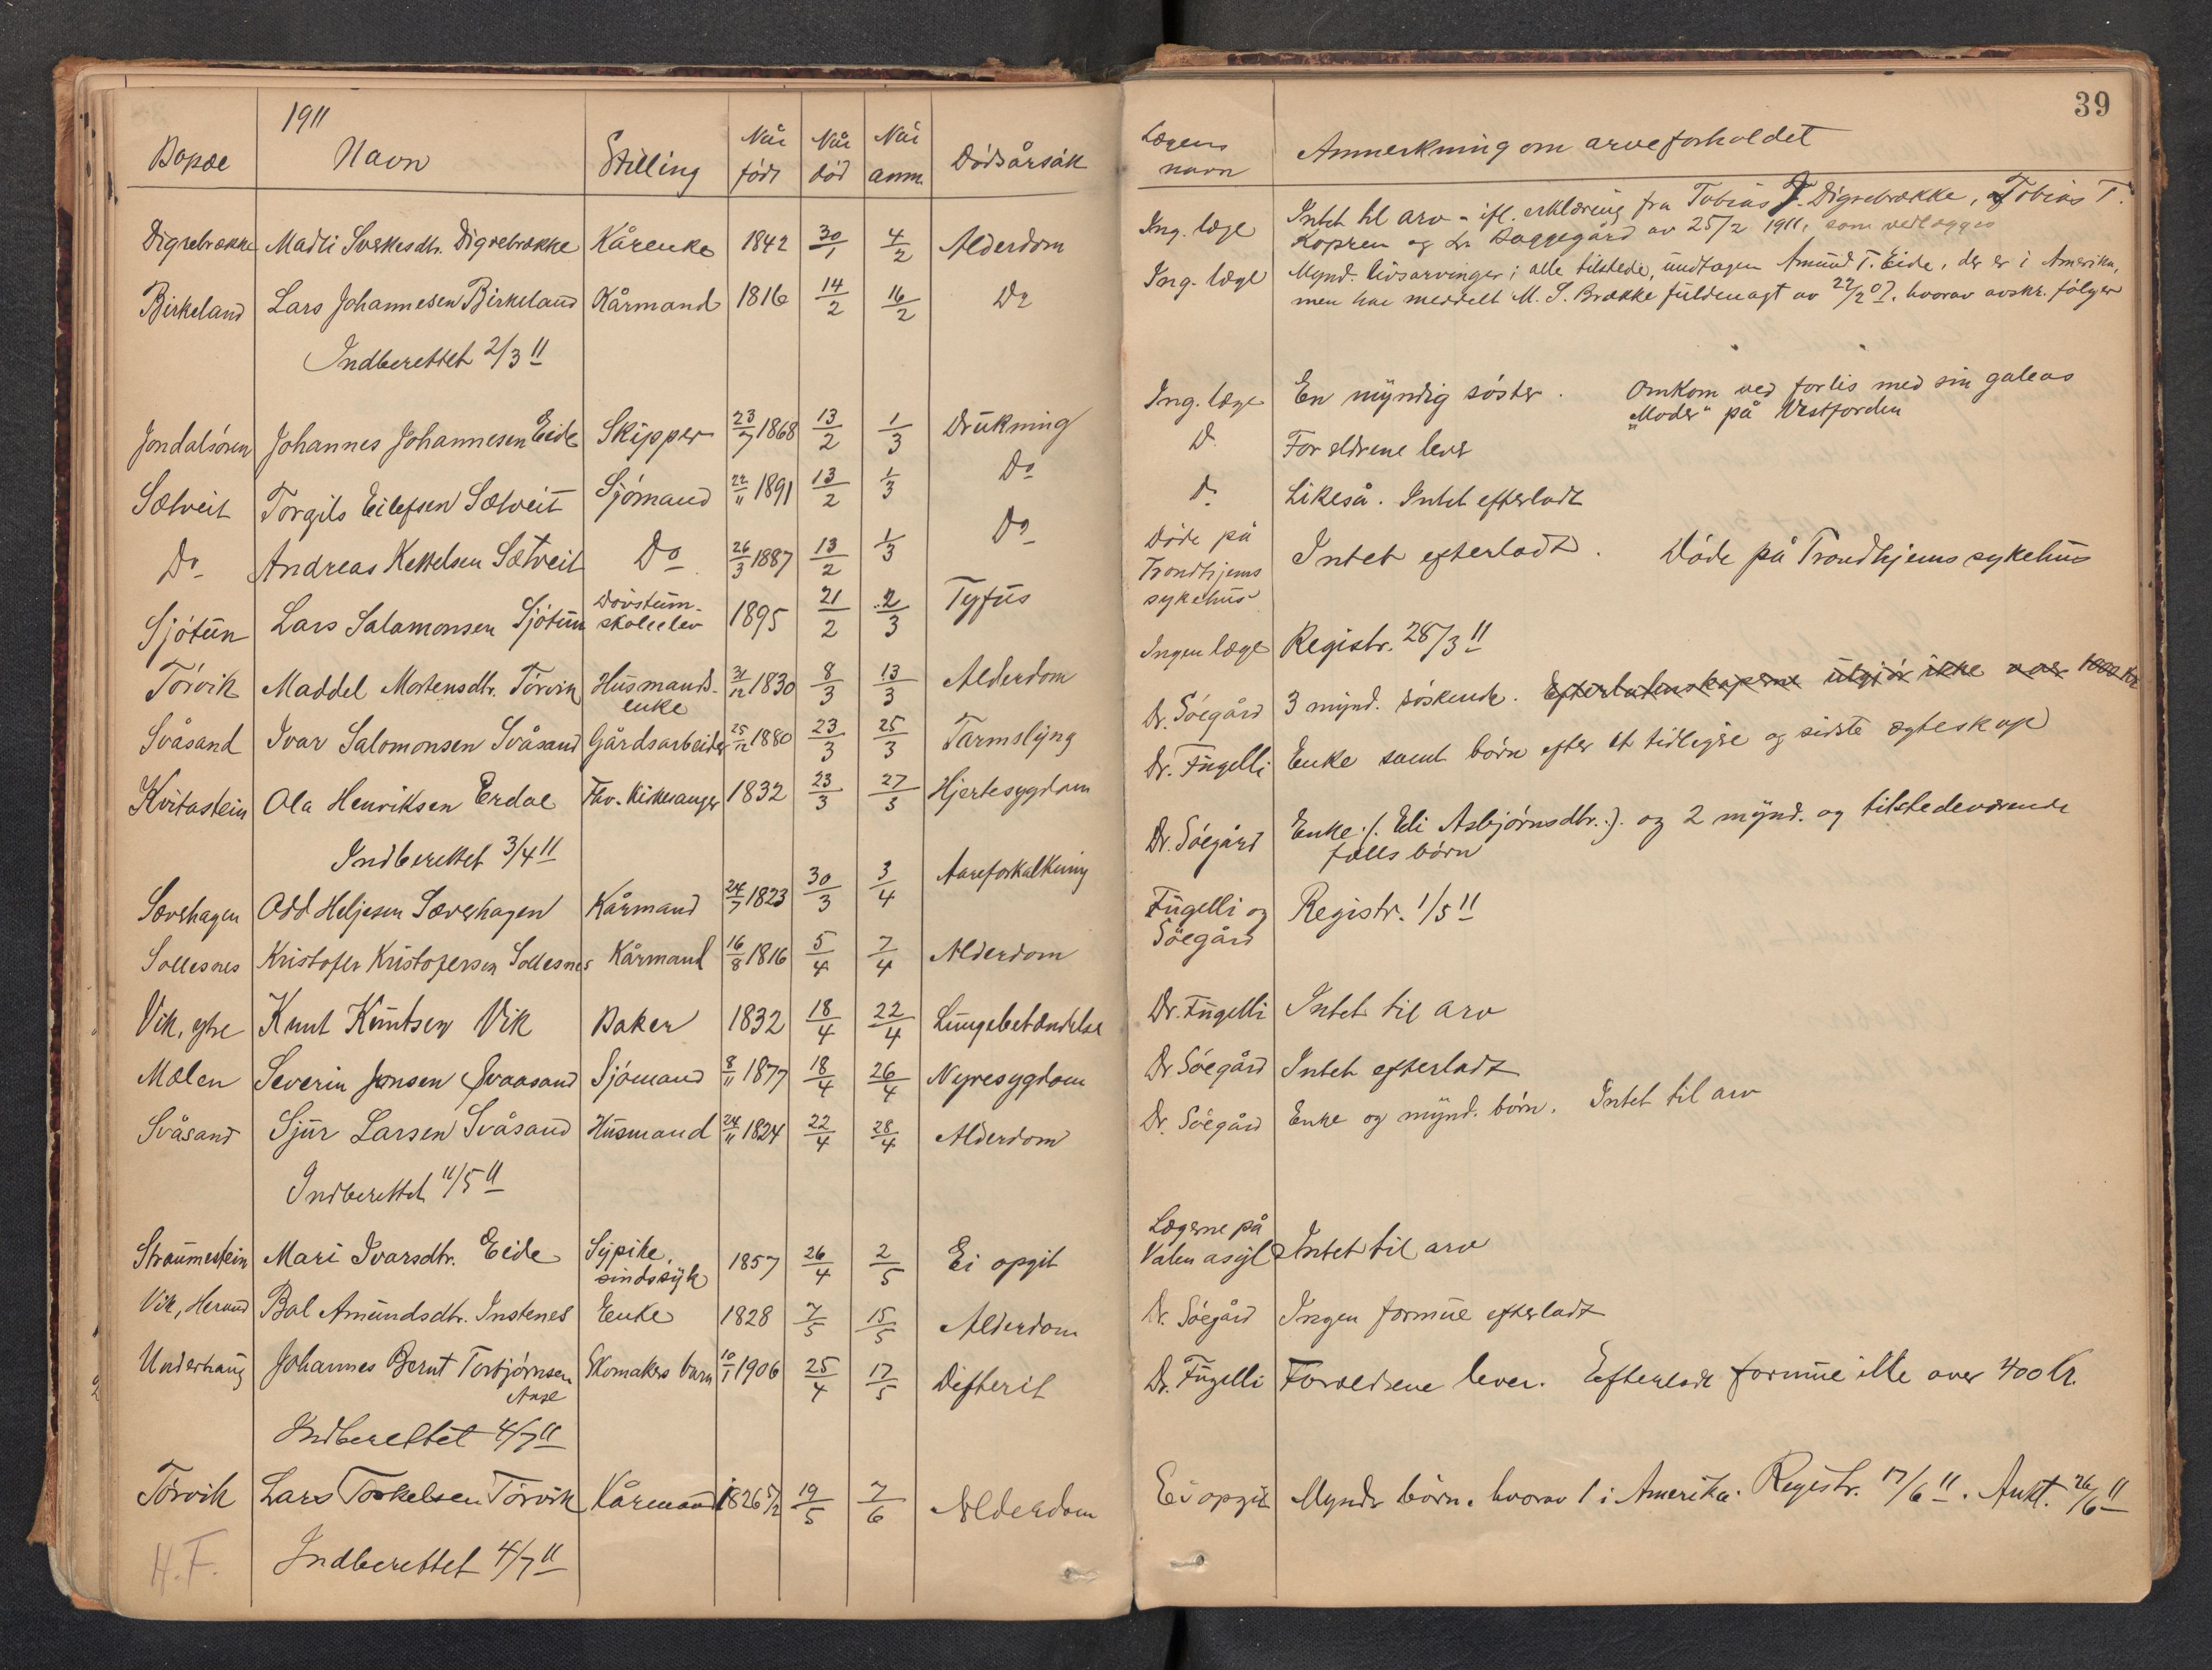 39
1911
Bopæl Navn Stilling Når født Når død Når anm. Dødsårsak Lægens navn Anmerkning om arveforholdet
Digrebrække Madli Sverkesdtr. Digrebrække Kårenke 1842 30/1 4/2 Alderdom Ing. læge Intet til arv - ifl. erklæring fra Tobias T. Digrebrække, Tobias T.
Kopren og Baggegård av 25/2 1911, som vedlægges
Birkeland Lars Johannesen Birkeland Kårmand 1816 14/2 16/2 Do Ing. læge Mynd. livsarvinger; alle tilstede, undtagen Amund T. Eide, der er i Amerika,
men har meddelt M. S. Brække fuldmagt av 22/2 07, hvorav avskr. følger
Indberettet 2/3 11
Jondalsøren Johannes Johannesen Eide Skipper 23/7 1868 13/2 1/3 Drukning Ing. læge En myndig søster. Omkom ved forlis med sin galeas
"Moder" på Vestfjorden
Sætveit Torgils Eilefsen Sætveit Sjømand 22/11 1891 13/2 1/3 Do Do Forældrene lever
Do Andreas Kettelsen Sætveit Do 26/3 1887 13/2 1/3 Do Do Likeså. Intet efterladt
Sjøtun Lars Salamonsen Sjøtun Døvstum-skoleelev 1895 21/2 2/3 Tyfus Døde på Trondhjems sykehus Intet efterladt. Døde på Trondhjems sykehus
Tørvik Maddel Mortensdtr. Tørvik Husmands-enke 31/12 1830 8/3 13/3 Alderdom Ingen læge Registr. 28/3 11
Svåsand Ivar Salomonsen Svåsand Gårdsarbeider 25/12 1880 23/3 25/3 Tarmslyng Dr. Søegård 3 mynd. søskende. Efterlatenskaperne utgjør ikke over 1000 Kr
Kvitastein Ola Henriksen Erdal Fhv. kirkesanger 1832 23/3 27/3 Hjertesygdom Dr. Fugelli Enke samt børn efter et tidligre og sidste ægteskap
Indberettet 3/4 11
Sævehagen Odd Heljesen Sævehagen Kårmand 24/7 1823 30/3 3/4 Aareforkalkning Dr. Søegård Enke (: Eli Asbjørnsdtr. :) og 2 mynd. og tilstedeværende
fælls børn
Sollesnes Kristofer Kristofersen Sollesnes Kårmand 16/8 1816 5/4 7/4 Alderdom Fugelli og Søegård Registr. 1/5 11
Vik, ytre Knut Knutsen Vik Baker 1832 18/4 22/4 Lungebetændelse Dr. Fugelli Intet til arv
Mælen Severin Jonsen Svaasand Sjømand 8/11 1877 18/4 26/4 Nyresygdom Dr Søegård Intet efterladt
Svåsand Sjur Larsen Svåsand Husmand 24/11 1824 22/4 28/4 Alderdom Dr. Søegård Enke og mynd. børn. Intet til arv
Indberettet 11/5 11
Straumestein Mari Ivarsdtr. Eide Sypike, sindssyk 1857 26/4 2/5 Ei opgit Lægerne på Valen asyl Intet til arv
Vik, Herand Bol Amundsdtr. Instenes Enke 1828 7/5 15/5 Alderdom Dr. Søegård Ingen formue efterladt
Underhaug Johannes Bernt Torbjørnsen Skomakers barn 10/1 1906 25/4 17/5 Difterit Dr. Fugelli Forældrene lever. Efterladt formue ikke over 400 Kr.
Indberettet 4/7 11
Tørvik Lars Torkelsen Tørvik Kårmand 1826 5/12 19/5 7/6 Alderdom Ei opgit Mynd. børn, hvorav 1 i Amerika. Registr. 17/6 11. Aukt. 26/6 11
H.F. Indberettet 4/7 11